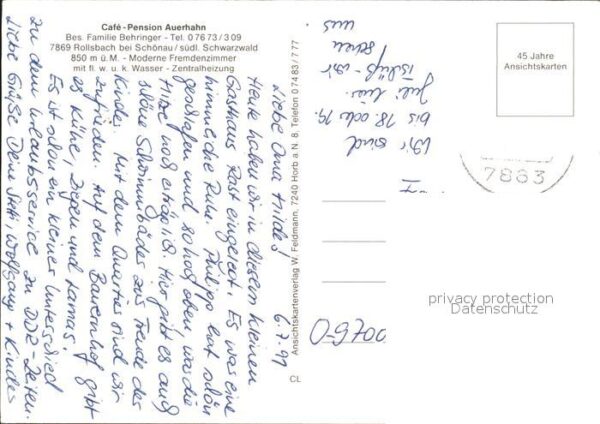 Café-Pension Auerhahn
Bes. Familie Behringer - Tel. 0 76 73 / 3 09
7869 Rollsbach bei Schönau / südl. Schwarzwald
850 m ü. M. - Moderne Fremdenzimmer
mit fl. w. u. k. Wasser - Zentralheizung
6.7.91
Liebe Oma Hilde!
Heute haben wir in diesem kleinen
Gasthaus Rast eingelegt. Es war eine
himmlische Ruh. Philipp hat schön
geschlafen und so hoch oben war die
Hitze noch erträglich. Hier gibt es auch
schöne Schwimmbäder zur Freude der
Kinder. Mit dem Quartier sind wir
zufrieden. Auf dem Bauernhof gibt
es Kühe, Ziegen und Lamas.
Es ist schon ein kleiner Unterschied
zu dem Urlaubsservice zu DDR-Zeiten.
Liebe Grüße Deine Steffi, Wolfgang + Kinder
Ansichtskartenverlag W. Feldmann, 7240 Horb a. N. 8, Telefon 0 74 83 / 777
CL
Wir sind
bis 18. oder 19.
Juli hier.
wir
freuen
uns
45 Jahre
Ansichtskarten
7863
O-9700
privacy protection
Datenschutz